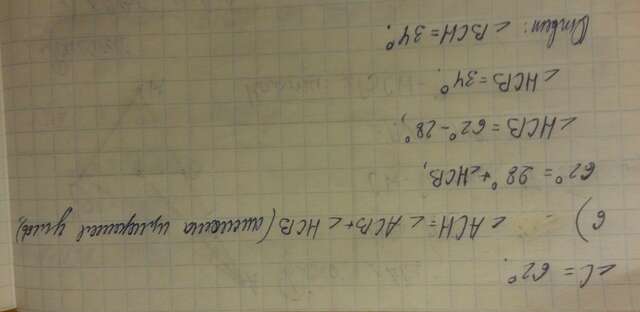 ∠C = 62°.
6) ∠ACH = ∠ACB + ∠HCB (аксиома измерения углов),
62° = 28° + ∠HCB,
∠HCB = 62° - 28°,
∠HCB = 34°.
Ответ: ∠BCH = 34°.